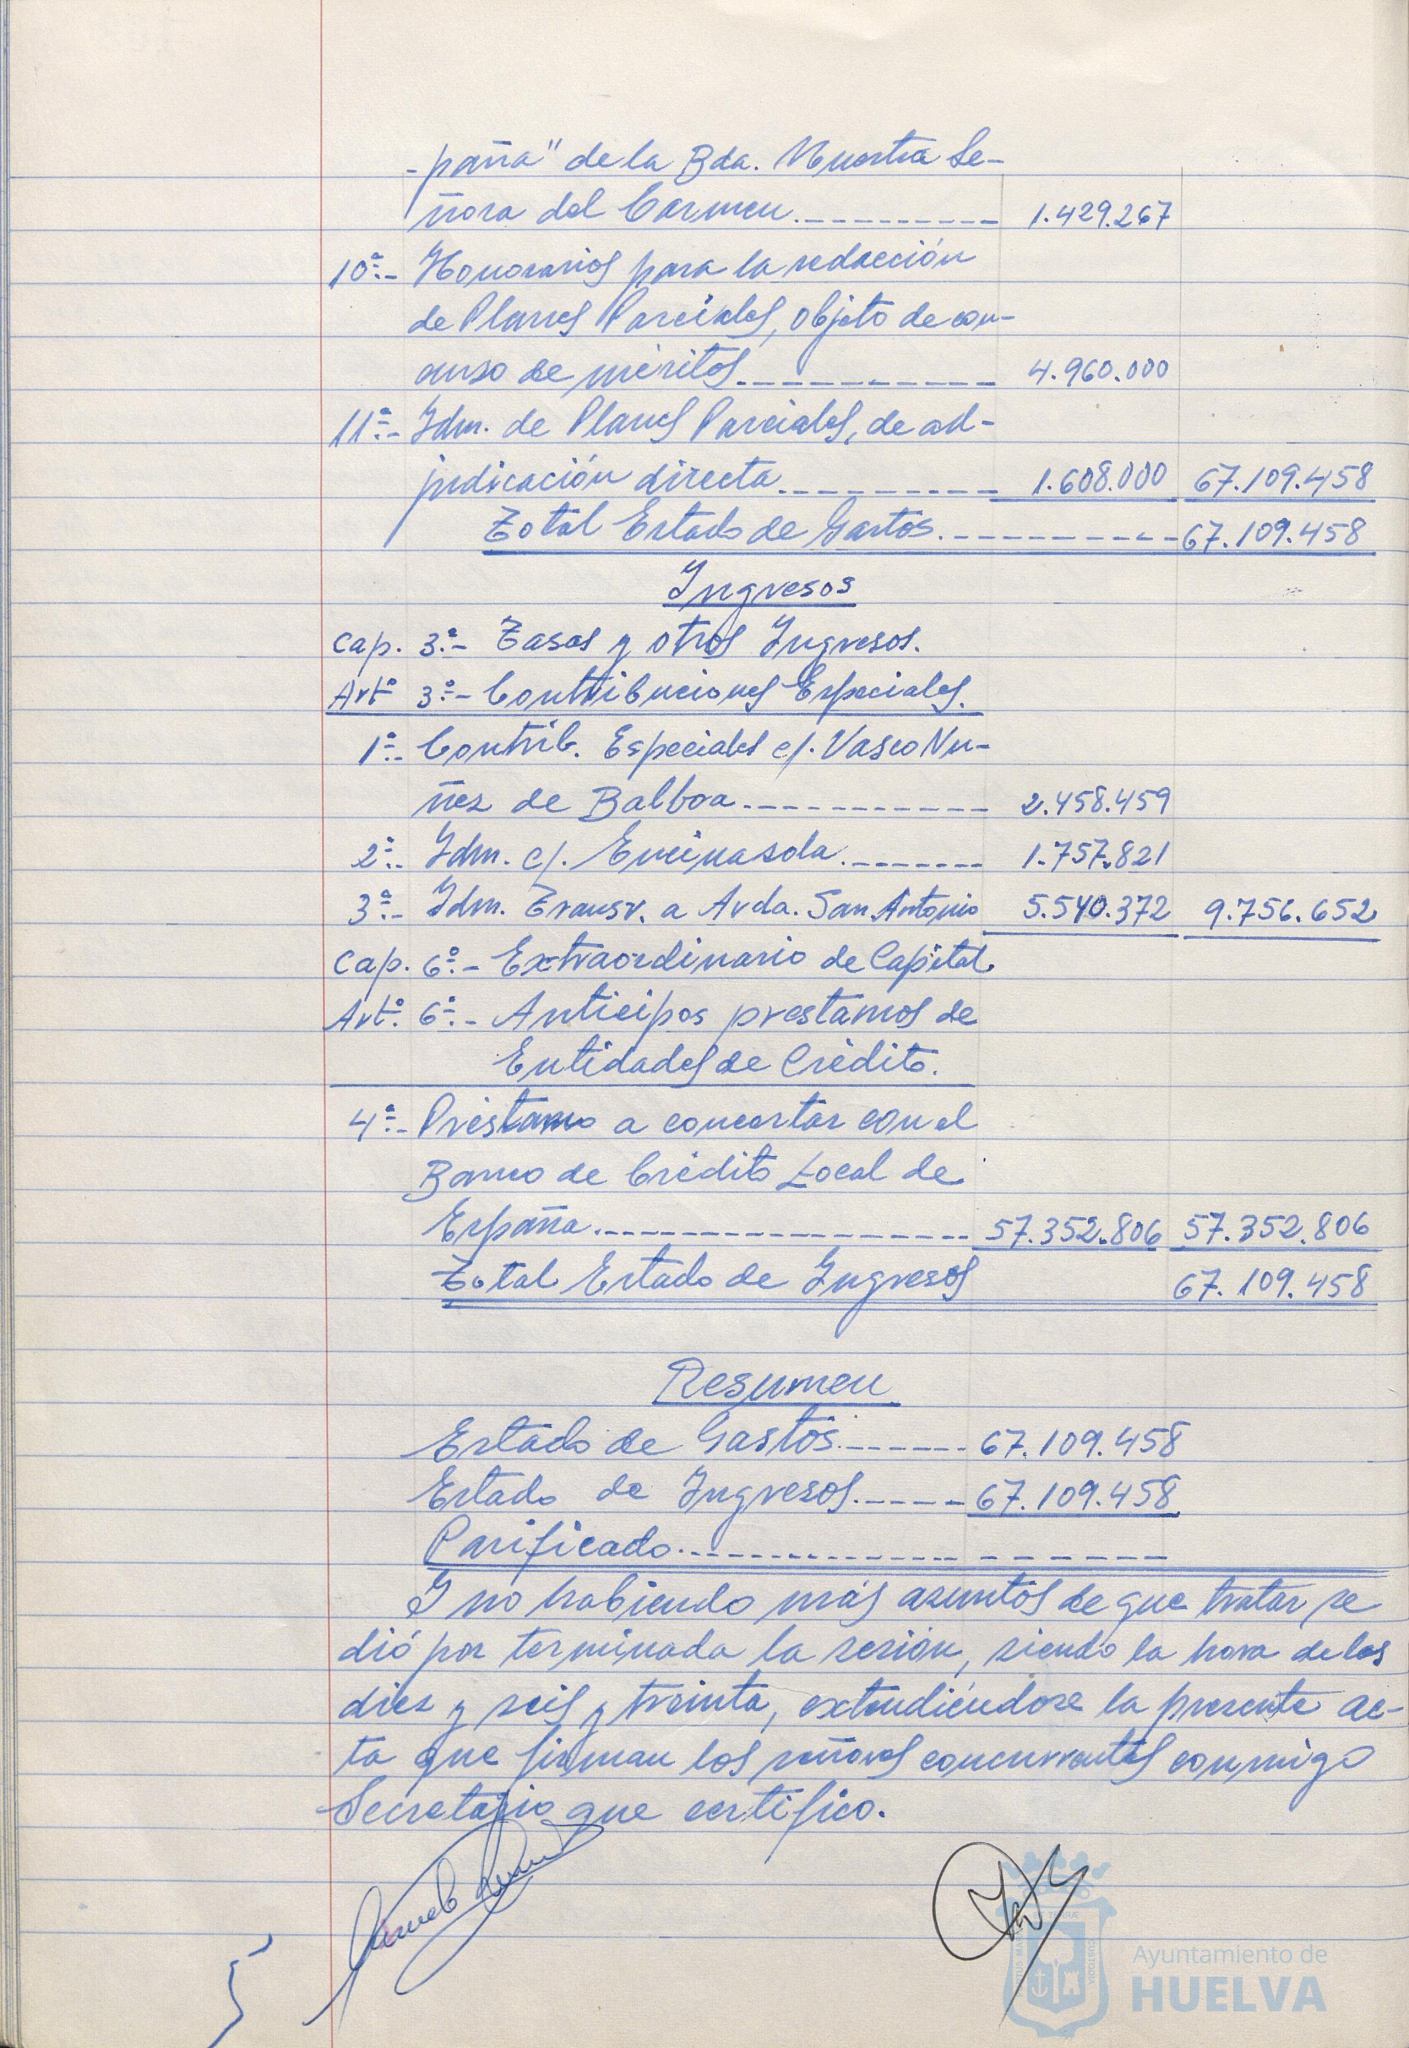 -paña" de la Bda. Nuestra Se-
ñora del Carmen.---------- 1.429.267
10ª.- Honorarios para la redacción
de Planes Parciales, objeto de con-
curso de méritos.---------- 4.960.000
11ª.- Idm. de Planes Parciales, de ad-
judicación directa.---------- 1.608.000 67.109.458
Total Estado de Gastos.---------- 67.109.458
Ingresos
Cap. 3º.- Tasas y otros Ingresos.
Artº 3º.- Contribuciones Especiales.
1ª.- Contrib. Especiales c/. Vasco Nu-
ñez de Balboa.---------- 2.458.459
2ª.- Idm. c/. Encinasola.------- 1.757.821
3ª.- Idm. Transv. a Avda. San Antonio 5.540.372 9.756.652
Cap. 6º.- Extraordinario de Capital.
Artº. 6º.- Anticipos prestamos de
Entidades de Crédito.
4ª.- Préstamo a concertar con el
Banco de Crédito Local de
España.---------------- 57.352.806 57.352.806
Total Estado de Ingresos 67.109.458
Resumen
Estado de Gastos.------ 67.109.458
Estado de Ingresos.----- 67.109.458
Parificado.--------------------
Y no habiendo más asuntos de que tratar, se
dió por terminada la sesión, siendo la hora de las
diez y seis y treinta, extendiéndose la presente ac-
ta que firman los señores concurrentes conmigo
Secretario que certifico.
Ayuntamiento de
HUELVA